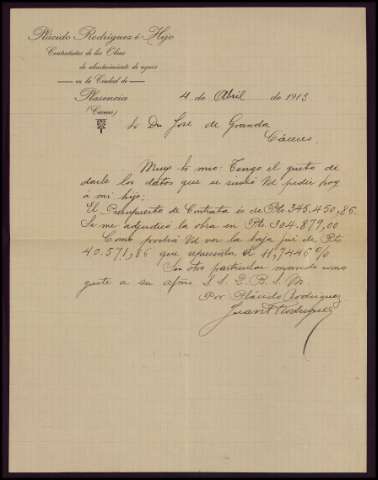 Plácido Rodríguez é Hijo
Contratistas de las Obras
de abastecimiento de aguas
en la Ciudad de
Plasencia
(Cáceres)
4 de Abril de 1913
Sr Dn José de Granda
Cáceres
Muy Sr mio: Tengo el gusto de
darle los datos que se sirvió Vd pedir hoy
a mi hijo;
El Presupuesto de Contrata és de Pts 345.450,86.
Se me adjudicó la obra en Pts 304.879,00
Como podrá Vd ver la baja fué de Pts
40.571,86 que representa el 11,7446 %
Sin otro particular mande como
guste a su afmo S. S. Q. B. S. M.
Por Plácido Rodríguez
Juan F Rodríguez